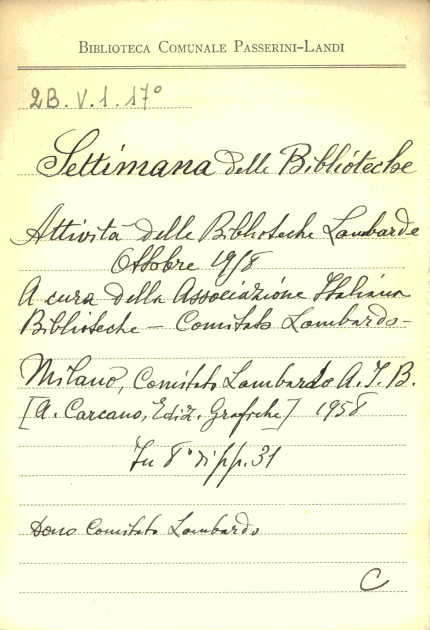 BIBLIOTECA COMUNALE PASSERINI-LANDI
2B.V.1.17°
Settimana delle Biblioteche
Attività delle Biblioteche Lombarde
Ottobre 1958
A cura della Associazione Italiana
Biblioteche - Comitato Lombardo -
Milano, Comitato Lombardo A.I.B.
[A. Carcano, Ediz. Grafiche] 1958
In 8° di pp. 31
Dono Comitato Lombardo
C